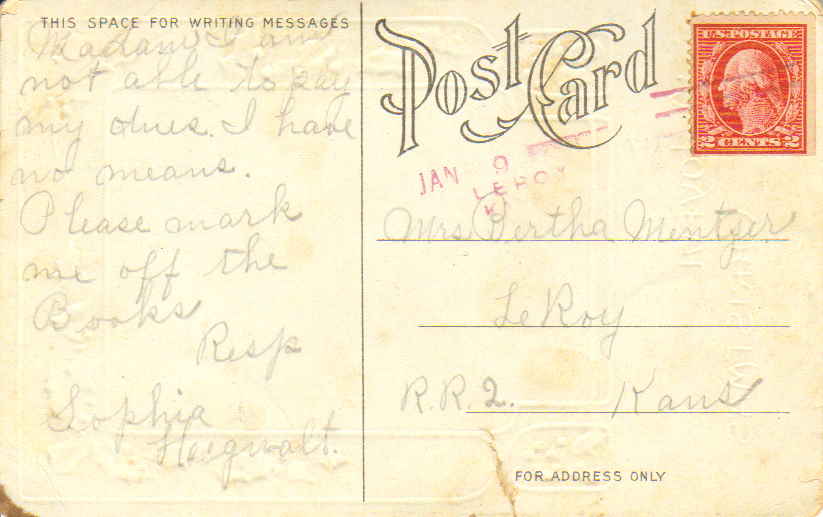 THIS SPACE FOR WRITING MESSAGES
Madam I am
not able to pay
my dues. I have
no means.
Please mark
me off the
Books
Resp
Sophia
Post Card
U.S. POSTAGE
2 CENTS 2
JAN 9
LEROY
Mrs Bertha Mentzer
LeRoy
R.R. 2. Kans
FOR ADDRESS ONLY